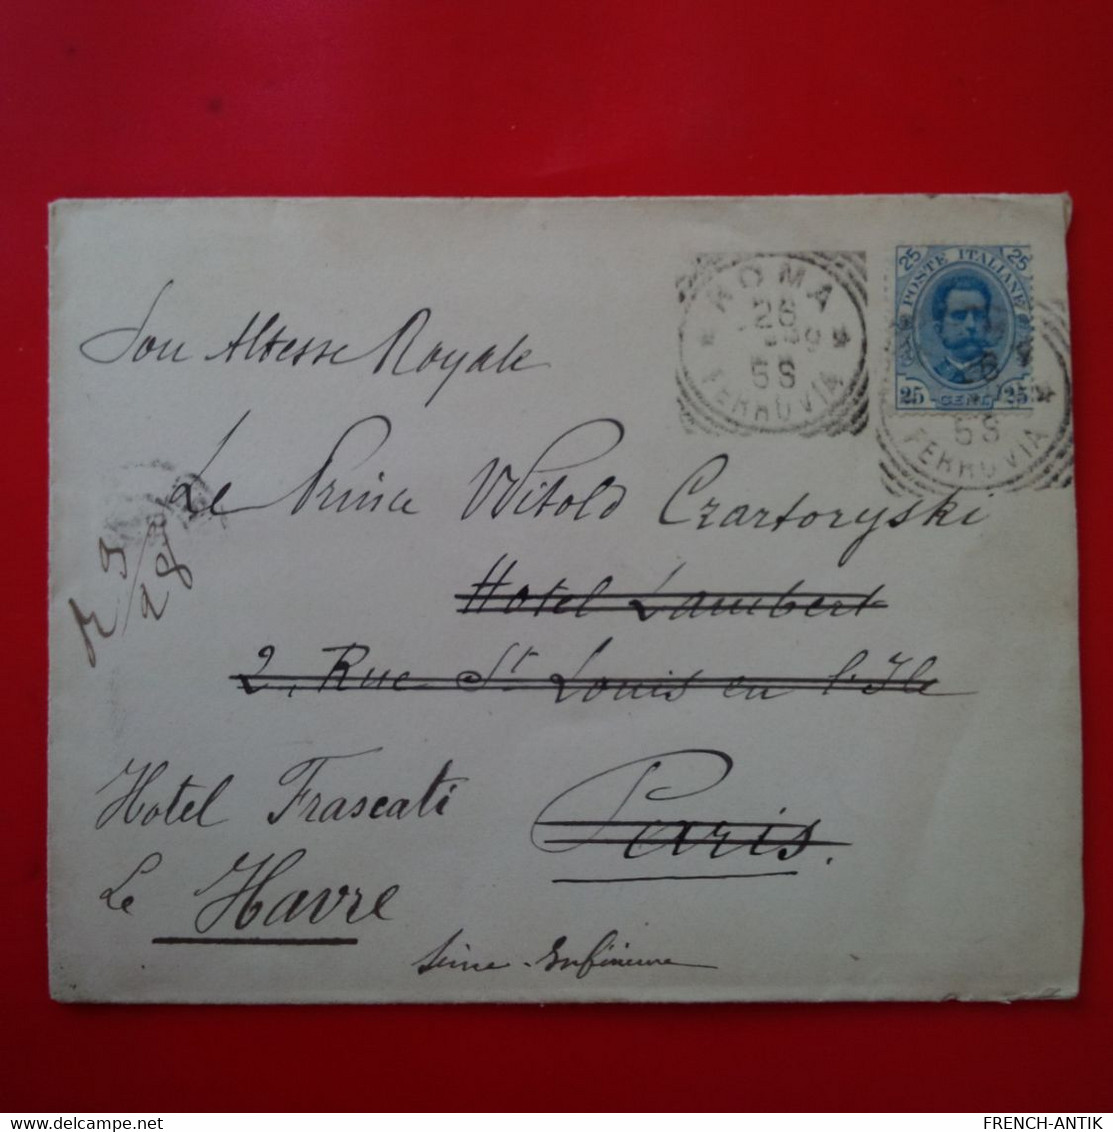 25 POSTE ITALIANE 25
25 CENT. 25
ROMA
26
5S
FERROVIA
26
5S
FERROVIA
Son Altesse Royale
Le Prince Witold Czartoryski
Hotel Lambert
2, Rue St Louis en l'Ile
Paris.
Hotel Frascati
Le Havre
Seine-Inférieure
9/28
delcampe.net
FRENCH-ANTIK